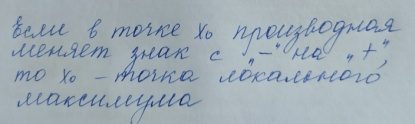 Если в точке x₀ производная
меняет знак с „-" на „+",
то x₀ - точка локального
максимума